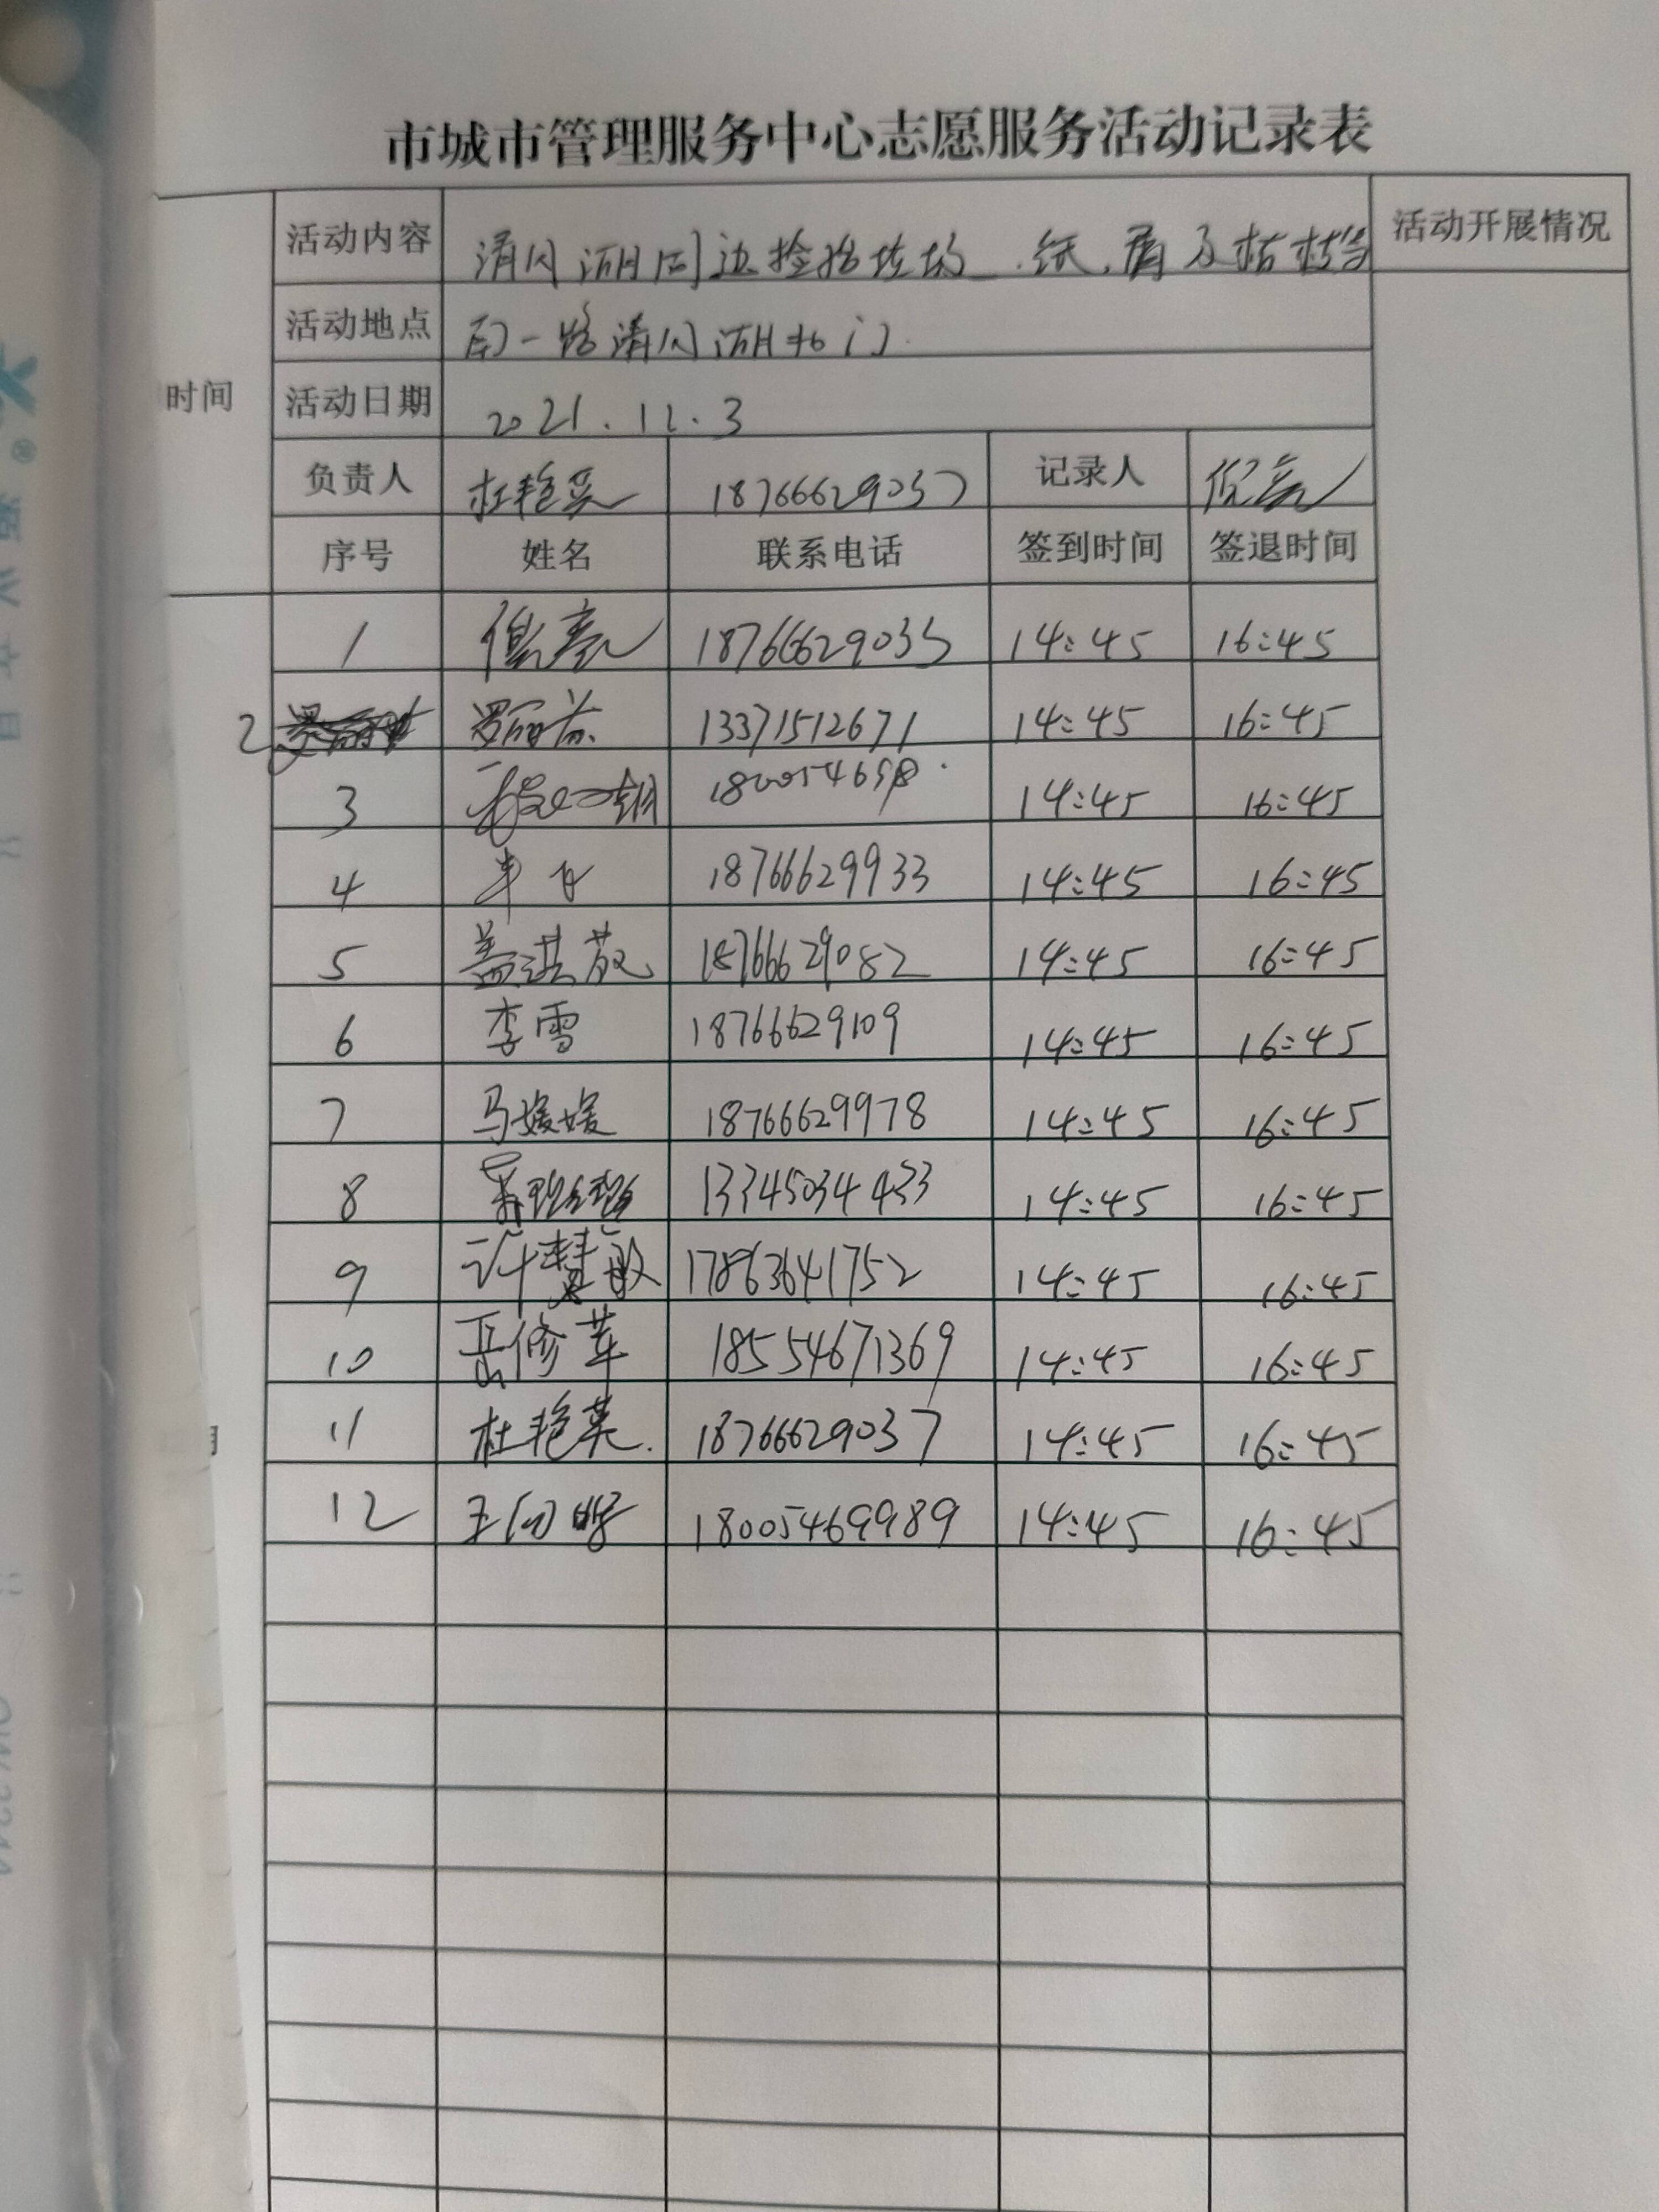 市城市管理服务中心志愿服务活动记录表
活动内容 清风湖周边捡拾垃圾、纸、屑及枯枝等 活动开展情况
活动地点 南一路清风湖北门
时间 活动日期 2021.12.3
负责人 杜艳英 18766629037 记录人
序号 姓名 联系电话 签到时间 签退时间
1 18766629035 14:45 16:45
2 罗丽 13371512671 14:45 16:45
3 14:45 16:45
4 18766629933 14:45 16:45
5 盖淇 18766629082 14:45 16:45
6 李雪 18766629109 14:45 16:45
7 马媛媛 18766629978 14:45 16:45
8 13345034433 14:45 16:45
9 许慧敏 17863641752 14:45 16:45
10 岳修苹 18554671369 14:45 16:45
11 杜艳英 18766629037 14:45 16:45
12 王 18005469989 14:45 16:45